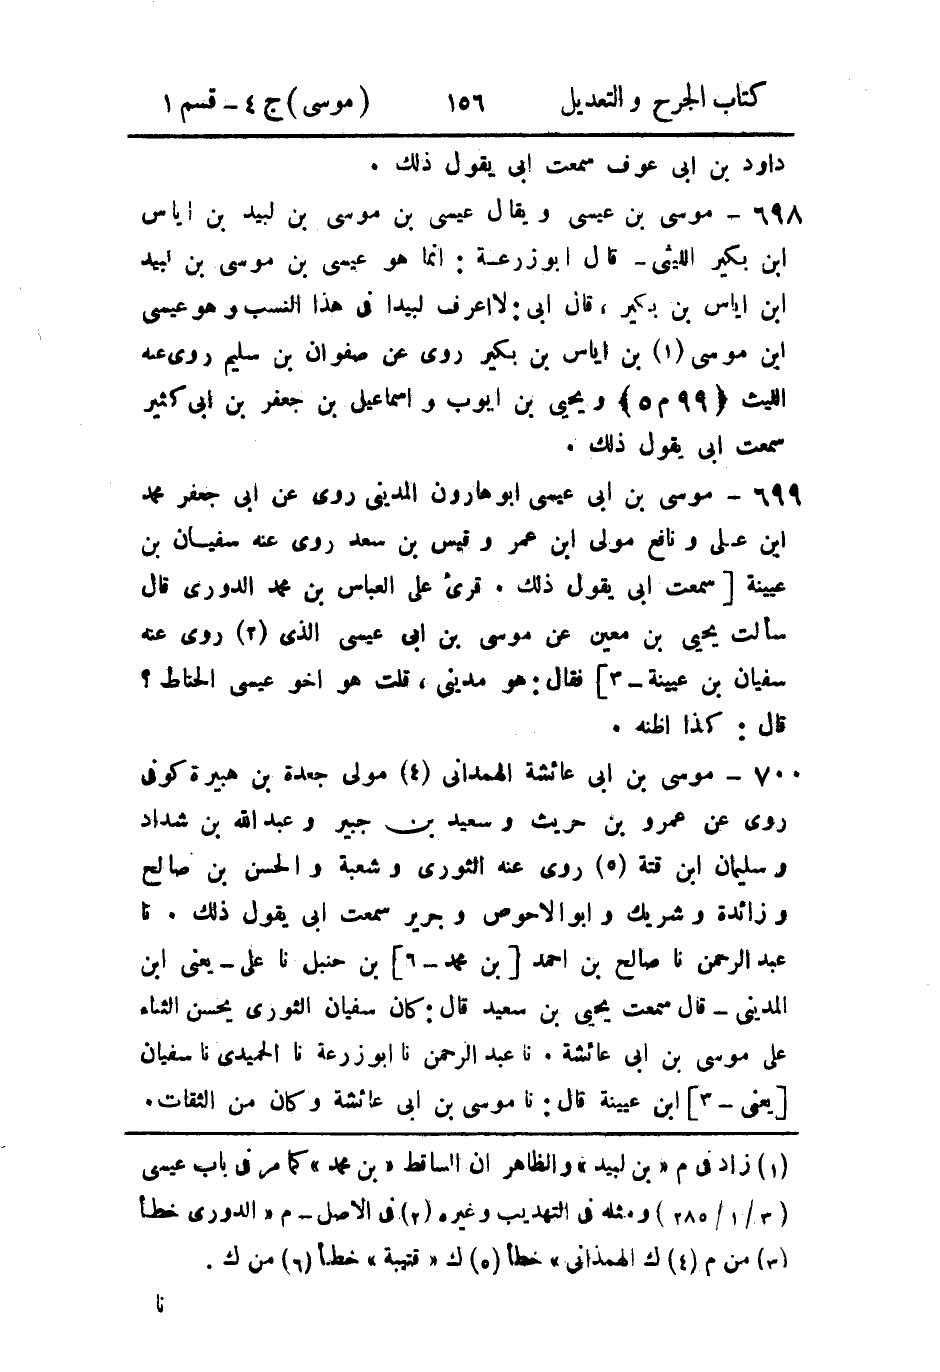 كتاب الجرح و التعديل ١٥٦ (موسى) ج ٤ - قسم ١
داود بن ابى عوف سمعت ابى يقول ذلك .
٦٩٨ - موسى بن عيسى و يقال عيسى بن موسى بن لبيد بن اياس
ابن بكير الليثى - قال ابو زرعة : انما هو عيسى بن موسى بن لبيد
ابن اياس بن بكير ، قال ابى : لا اعرف لبيدا فى هذا النسب و هو عيسى
ابن موسى (١) بن اياس بن بكير روى عن صفوان بن سليم روى عنه
الليث {٩٩ م ٥} و يحيى بن ايوب و اسماعيل بن جعفر بن ابى كثير
سمعت ابى يقول ذلك .
٦٩٩ - موسى بن ابى عيسى ابو هارون المدينى روى عن ابى جعفر محمد
ابن على و نافع مولى ابن عمر و قيس بن سعد روى عنه سفيان بن
عيينة [ سمعت ابى يقول ذلك . قرئ على العباس بن محمد الدورى قال
سألت يحيى بن معين عن موسى بن ابى عيسى الذى (٢) روى عنه
سفيان بن عيينة - ٣] فقال : هو مدينى ، قلت هو اخو عيسى الحناط ؟
قال : كذا اظنه .
٧٠٠ - موسى بن ابى عائشة الهمدانى (٤) مولى جعدة بن هبيرة كوفى
روى عن عمرو بن حريث و سعيد بن جبير و عبد الله بن شداد
و سليمان ابن قتة (٥) روى عنه الثورى و شعبة و الحسن بن صالح
و زائدة و شريك و ابو الاحوص و جرير سمعت ابى يقول ذلك . نا
عبد الرحمن نا صالح بن احمد [ بن محمد - ٦] بن حنبل نا على - يعنى ابن
المدينى - قال سمعت يحيى بن سعيد قال : كان سفيان الثورى يحسن الثناء
على موسى بن ابى عائشة . نا عبد الرحمن نا ابو زرعة نا الحميدى نا سفيان
[يعنى - ٣] ابن عيينة قال : نا موسى بن ابى عائشة و كان من الثقات .
(١) زاد فى م « بن لبيد » و الظاهر ان الساقط « بن محمد » كما مر فى باب عيسى
(٣ / ١ / ٢٨٥) و مثله فى التهذيب و غيره (٢) فى الاصل - م « الدورى خطأ
(٣) من م (٤) ك الهمذانى » خطأ (٥) ك « قتيبة » خطأ (٦) من ك .
نا